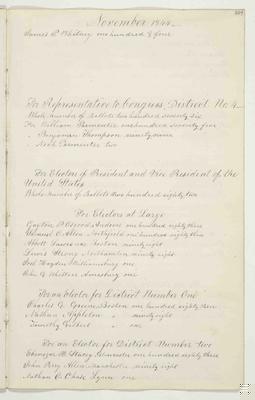 November 1844
James P Whitney one hundred & four
For Representative to Congress, District No. 4
Whole number of ballots two hundred seventy six
For William Parmenter one hundred seventy five
" Benjamin Thompson ninety nine
Noah Parmenter two
For Electors of President and Vice President of the
United States
Whole number of Ballots two hundred eighty two
For Electors at Large
Gayton P Osgood Andover one hundred eighty three
Samuel C Allen Northfield one hundred eighty three
Abbott Lawrence Boston ninety eight
Lewis Strong Northampton ninety eight
Joel Hayden Williamsburg one
John G Whittier Amesbury one
For an Elector for District Number One
Charles G. Greene Boston one hundred eighty three
Nathan Appleton " ninety eight
Timothy Gilbert " one
For an Elector for District Number two
Ebenezer Stacey Gloucester one hundred eighty three
John Perry Allen Manchester ninety eight
Nathan D. Chase Lynn one